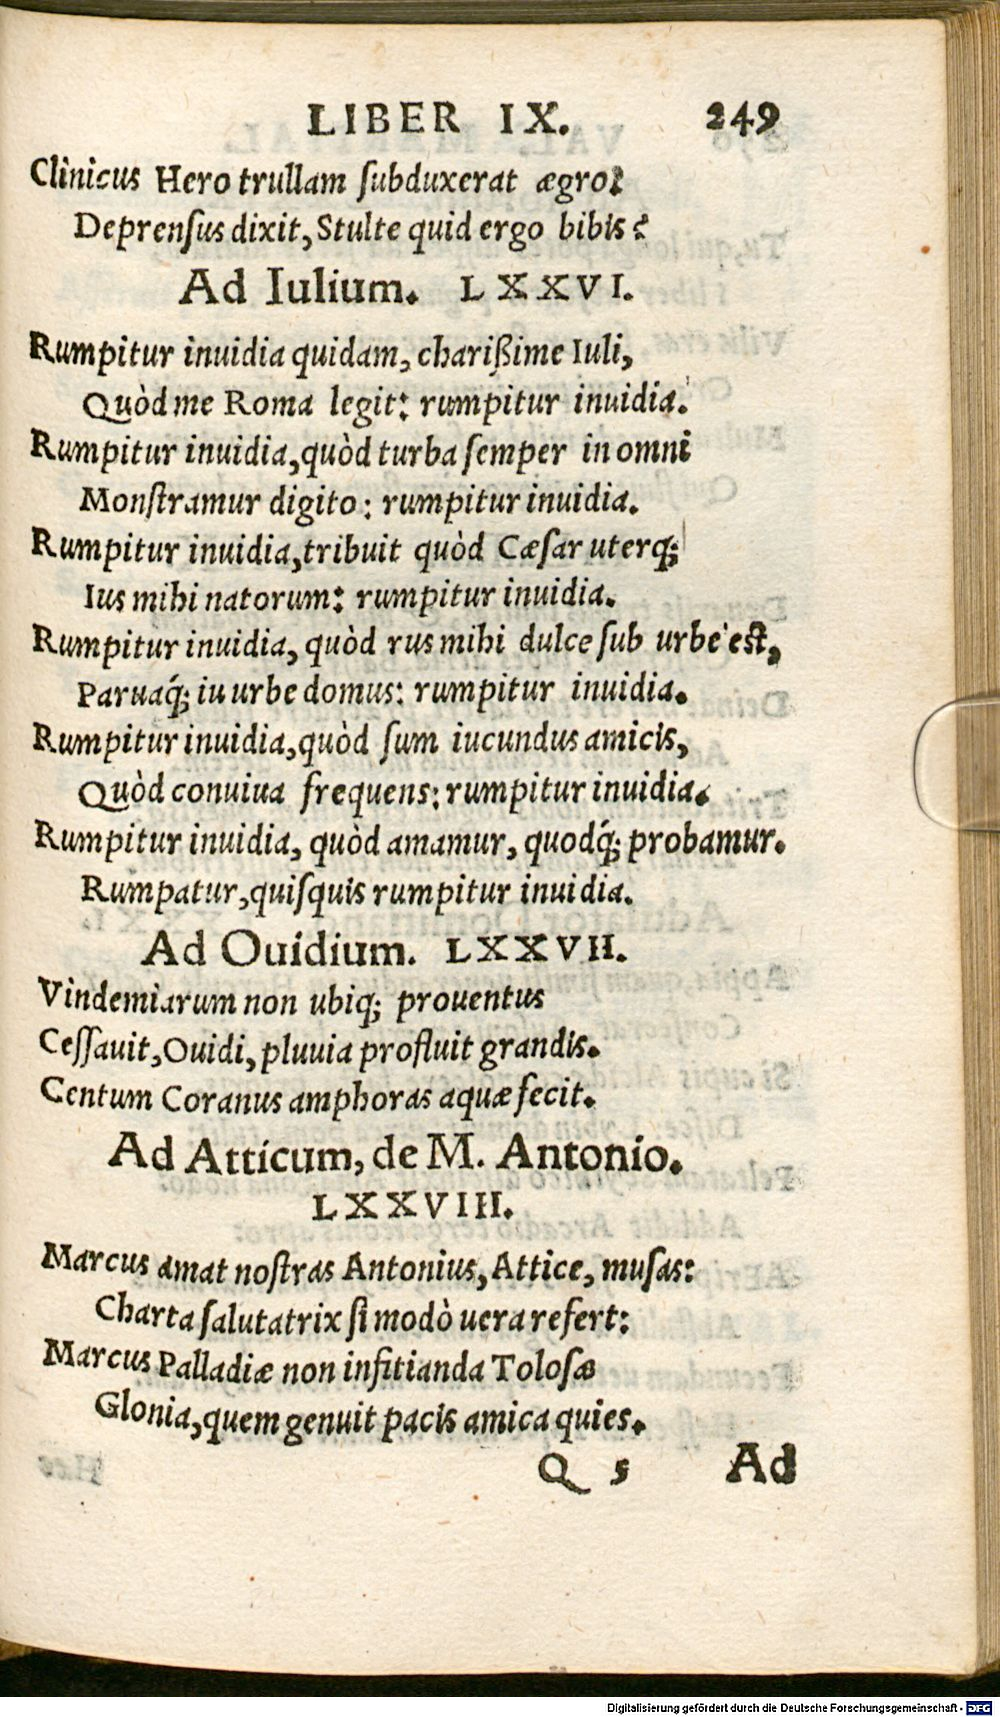 LIBER IX. 249
Clinicus Hero trullam ſubduxerat ægro:
Deprenſus dixit, Stulte quid ergo bibis?
Ad Iulium. LXXVI.
Rumpitur inuidia quidam, charißime Iuli,
Quòd me Roma legit: rumpitur inuidia.
Rumpitur inuidia, quòd turba ſemper in omni
Monſtramur digito: rumpitur inuidia.
Rumpitur inuidia, tribuit quòd Cæſar uterq;
Ius mihi natorum: rumpitur inuidia.
Rumpitur inuidia, quòd rus mihi dulce ſub urbe est,
Paruaq́; iu urbe domus: rumpitur inuidia.
Rumpitur inuidia, quòd ſum iucundus amicis,
Quòd conuiua frequens: rumpitur inuidia.
Rumpitur inuidia, quòd amamur, quodq́; probamur.
Rumpatur, quiſquis rumpitur inuidia.
Ad Ouidium. LXXVII.
Vindemiarum non ubiq; prouentus
Ceſſauit, Ouidi, pluuia profluit grandis.
Centum Coranus amphoras aquæ fecit.
Ad Atticum, de M. Antonio.
LXXVIII.
Marcus amat noſtras Antonius, Attice, muſas:
Charta ſalutatrix ſi modò uera refert:
Marcus Palladiæ non infitianda Toloſæ
Glonia, quem genuit pacis amica quies.
Q 5 Ad
Digitalisierung gefördert durch die Deutsche Forschungsgemeinschaft - DFG